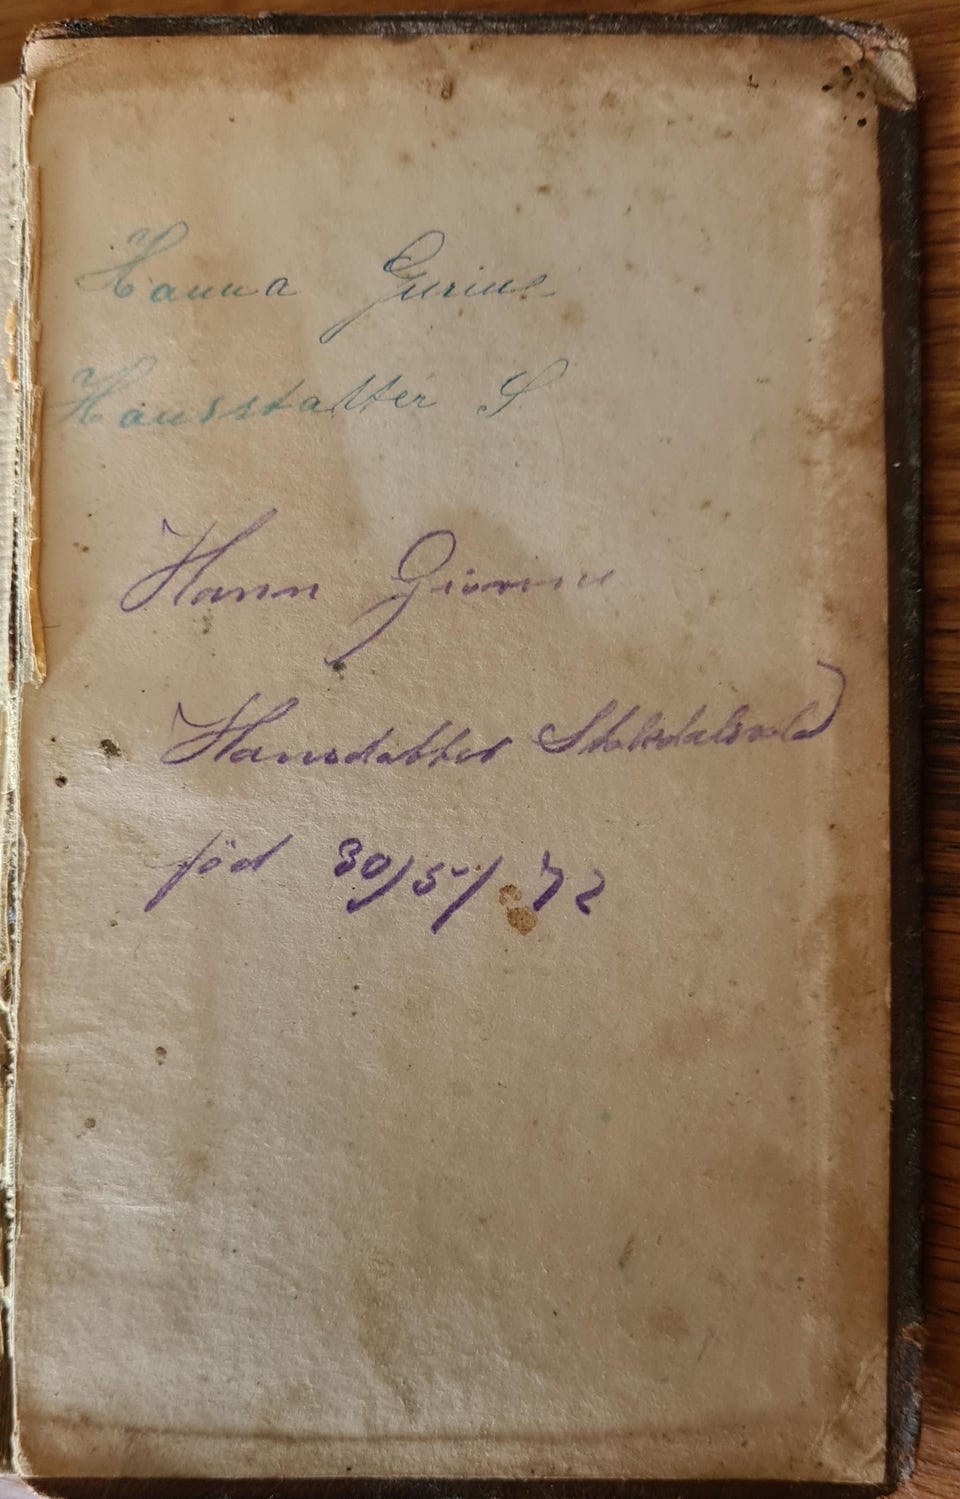 Hanna Gurine
Hansstatter S
Hann Giorine
Hansdatter Stokdalsvald
föd 30/5/72